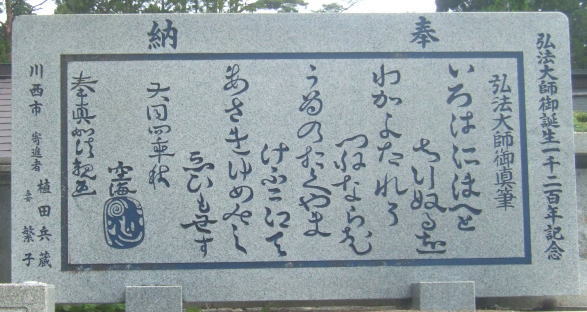 奉納
弘法大師御誕生一千二百年記念
弘法大師御真筆
いろはにほへと
ちりぬるを
わかよたれそ
つねならむ
うゐのおくやま
けふこえて
あさきゆめみし
ゑひもせす
空海
川西市 寄進者 植田兵蔵
妻 繁子